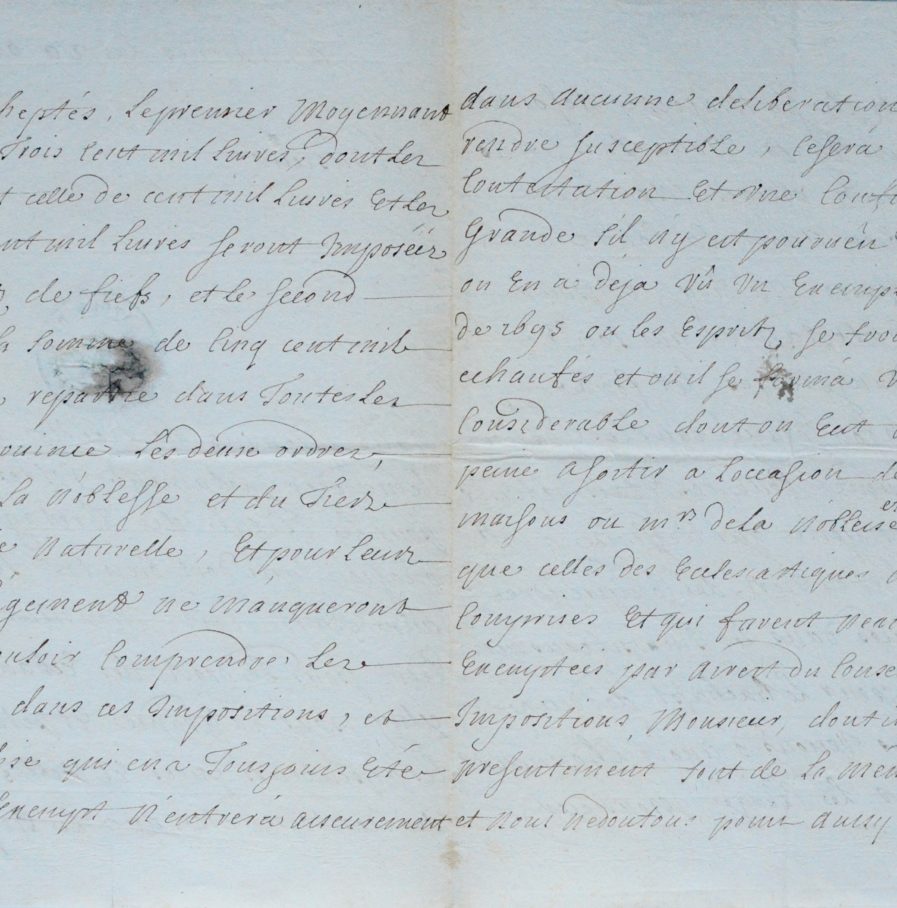 heptés, Le premier Moyennant
Trois Cent mil Livres, dont Les
t celle de cent mil Livres Et Les
nt mil Livres seront Imposéés
de fiefs, et le second
somme de Cinq cent mil
repartie dans Toutes Les
ouince Les deux ordres,
La Noblesse et du Tiers
e Naturelle, Et pour Leur
gement ne manqueront
ouloir Comprendre Les
dans ces Impositions, et
ise qui en a Tousjours Eté
Exempt N'entrera asseurement
dans Aucunne deliberation
rendre susceptible, Ce sera
Contestation Et vne Conf
Grande s'il n'y est pourueu
on En a déja Vû Vn Exemp
de 1695 ou les Esprits se trou
echaufés et ou il se forma v
Considerable dont on Eut
peine a sortir a Loccasion de
maisons ou mrs de La Noblesse et
que celles des Ecclesiastiques
Comprises Et qui furent
Exemptées par Arrest du Conse
Impositions, Monsieur, dont i
presentement sont de La mem
et nous ne doutons point Aussy